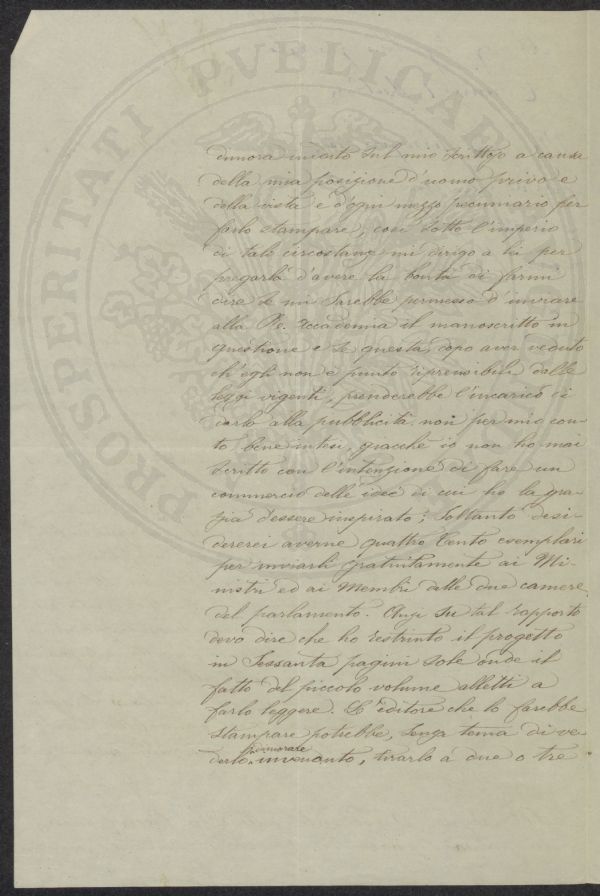 PROSPERITATI PVBLICAE
dimora inedito sul mio scrittojo a causa
della mia posizione d'uomo privo e
della vista e d'ogni mezzo pecuniario per
farlo stampare, così sotto l'imperio
di tale circostanza mi dirigo a lei per
pregarla d'avere la bontà di farmi
dire se mi sarebbe permesso d'inviare
alla Re. Accademia il manoscritto in
questione e se questa, dopo aver veduto
ch'egli non è punto riprensibile dalle
leggi vigenti, prenderebbe l'incarico di
darlo alla pubblicità non per mio con-
to bene intesi, giacchè io non ho mai
scritto con l'intenzione di fare un
commercio delle idee di cui ho la gra-
zia d'essere inspirato; soltanto desi-
dererei averne quattro Cento esemplari
per inviarli gratuitamente ai Mi-
nistri ed ai Membri delle due camere
del parlamento. Anzi su tal rapporto
devo dire che ho restrinto il progetto
in Sessanta pagini sole onde il
fatto del piccolo volume alletti a
farlo leggere. L'editore che lo farebbe
stampare potrebbe, senza tema di ve-
derlo dimorare invenduto, tirarlo a due o tre